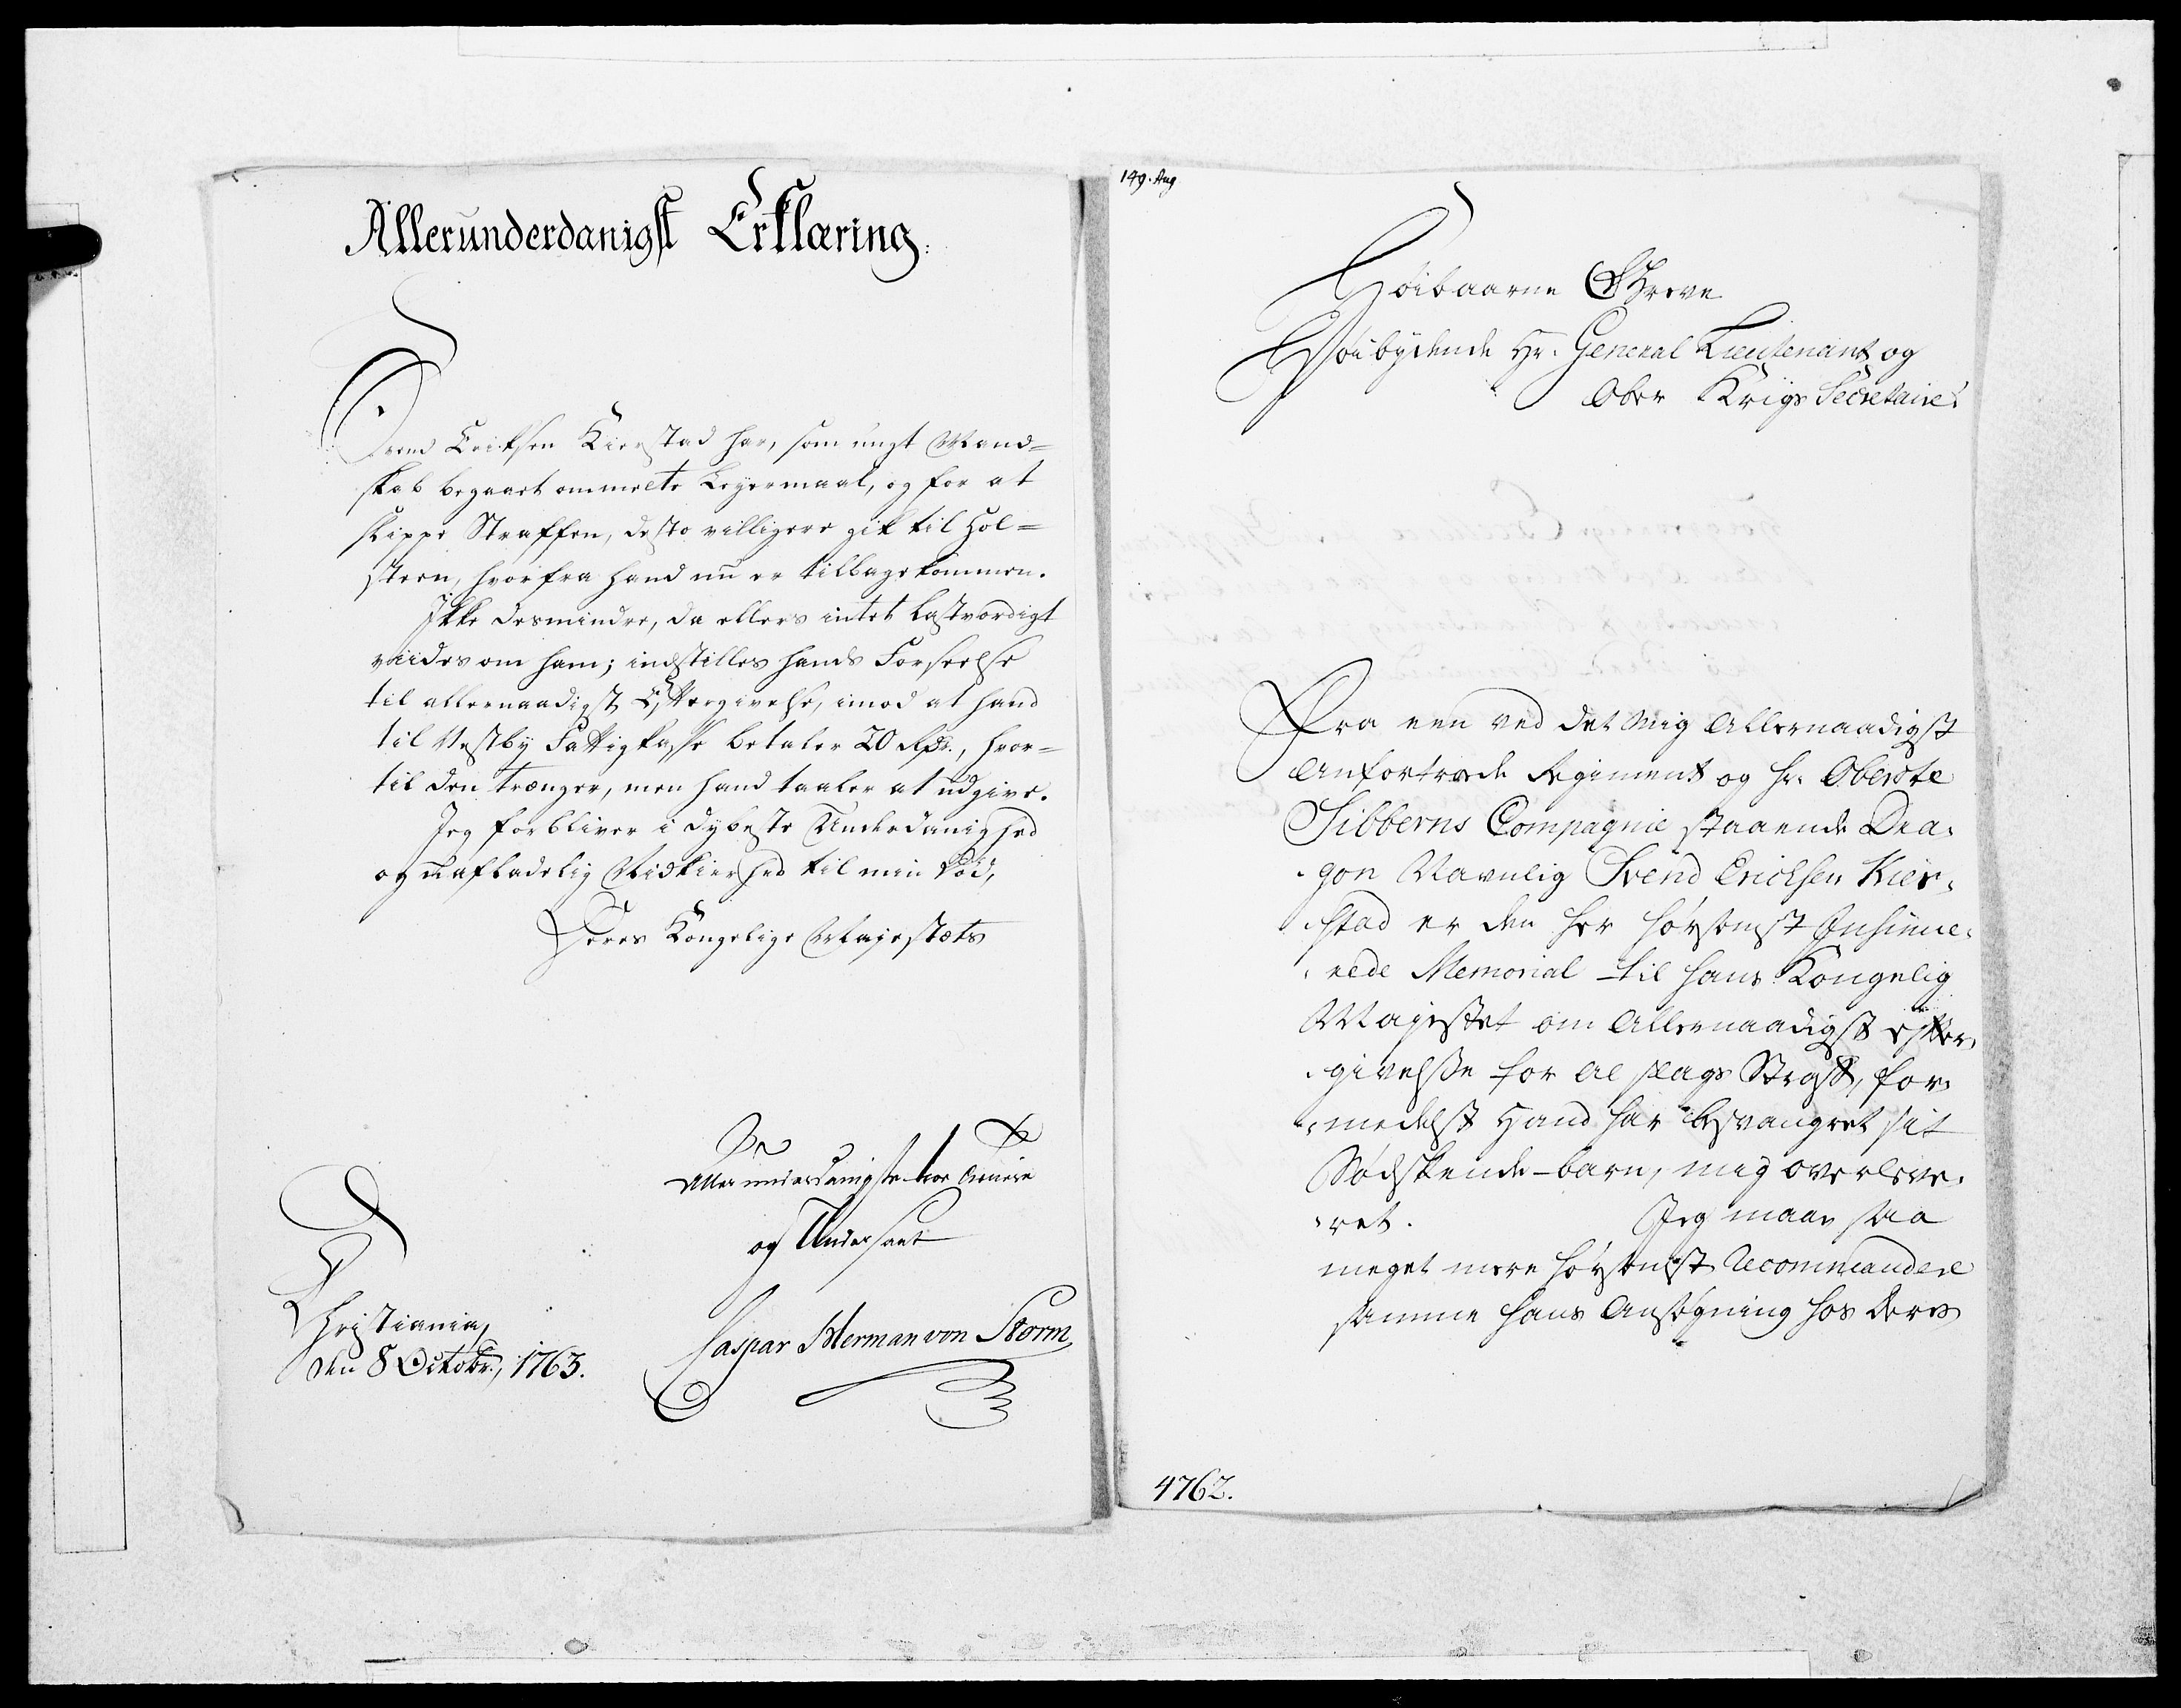 Allerunderdanigst Erklæring.
Svend Eriksen Kierstad har, som ungt Mand=
skab begaaet ommelte Leyermaal, og for at
slippe Straffen, desto villigere gik til Hol=
steen, hvorfra hand nu er tilbagekommen.
Ikke desmindre, da ellers intet Lastværdigt
viides om ham; indstilles hands Forseelse
til allernaadigst Eftergivelse, imod at hand
til Nestby Fattigkasse betaler 20 Rdr., hvor=
til den trænger, men hand taaler at udgive.
Jeg forbliver i dybeste Underdanighed
og uafladelig Nidkierhed til min Död,
Deres Kongelige Majestæts
Allerunderdanigste troe Tienere
og Undersaat
Christiania,
den 8 Octobr., 1763.
Caspar Herman von Storm
149. Aug
Höibaarne Greve
Höibydende Hr. General Lieutenant og
Ober Krigs Secretaire!
Fra een ved det Mig Allernaadigst
Anfortroede Regiment og Hr. Oberste
Sibberns Compagnie staaende Dra-
-gon Navnlig Svend Erichsen Kier-
-stad er den her höyst Insinue-
-rede Memorial til Hans Kongelig
Majestet om Allernaadigst Efter-
-givelsse for al slags Straf, for-
-medelst Hand har besvangret sit
Södskende-barn, mig overleve-
-ret. Jeg maae saa
meget mere Recommandere
samme Hans Ansögning hos Deres
4762.